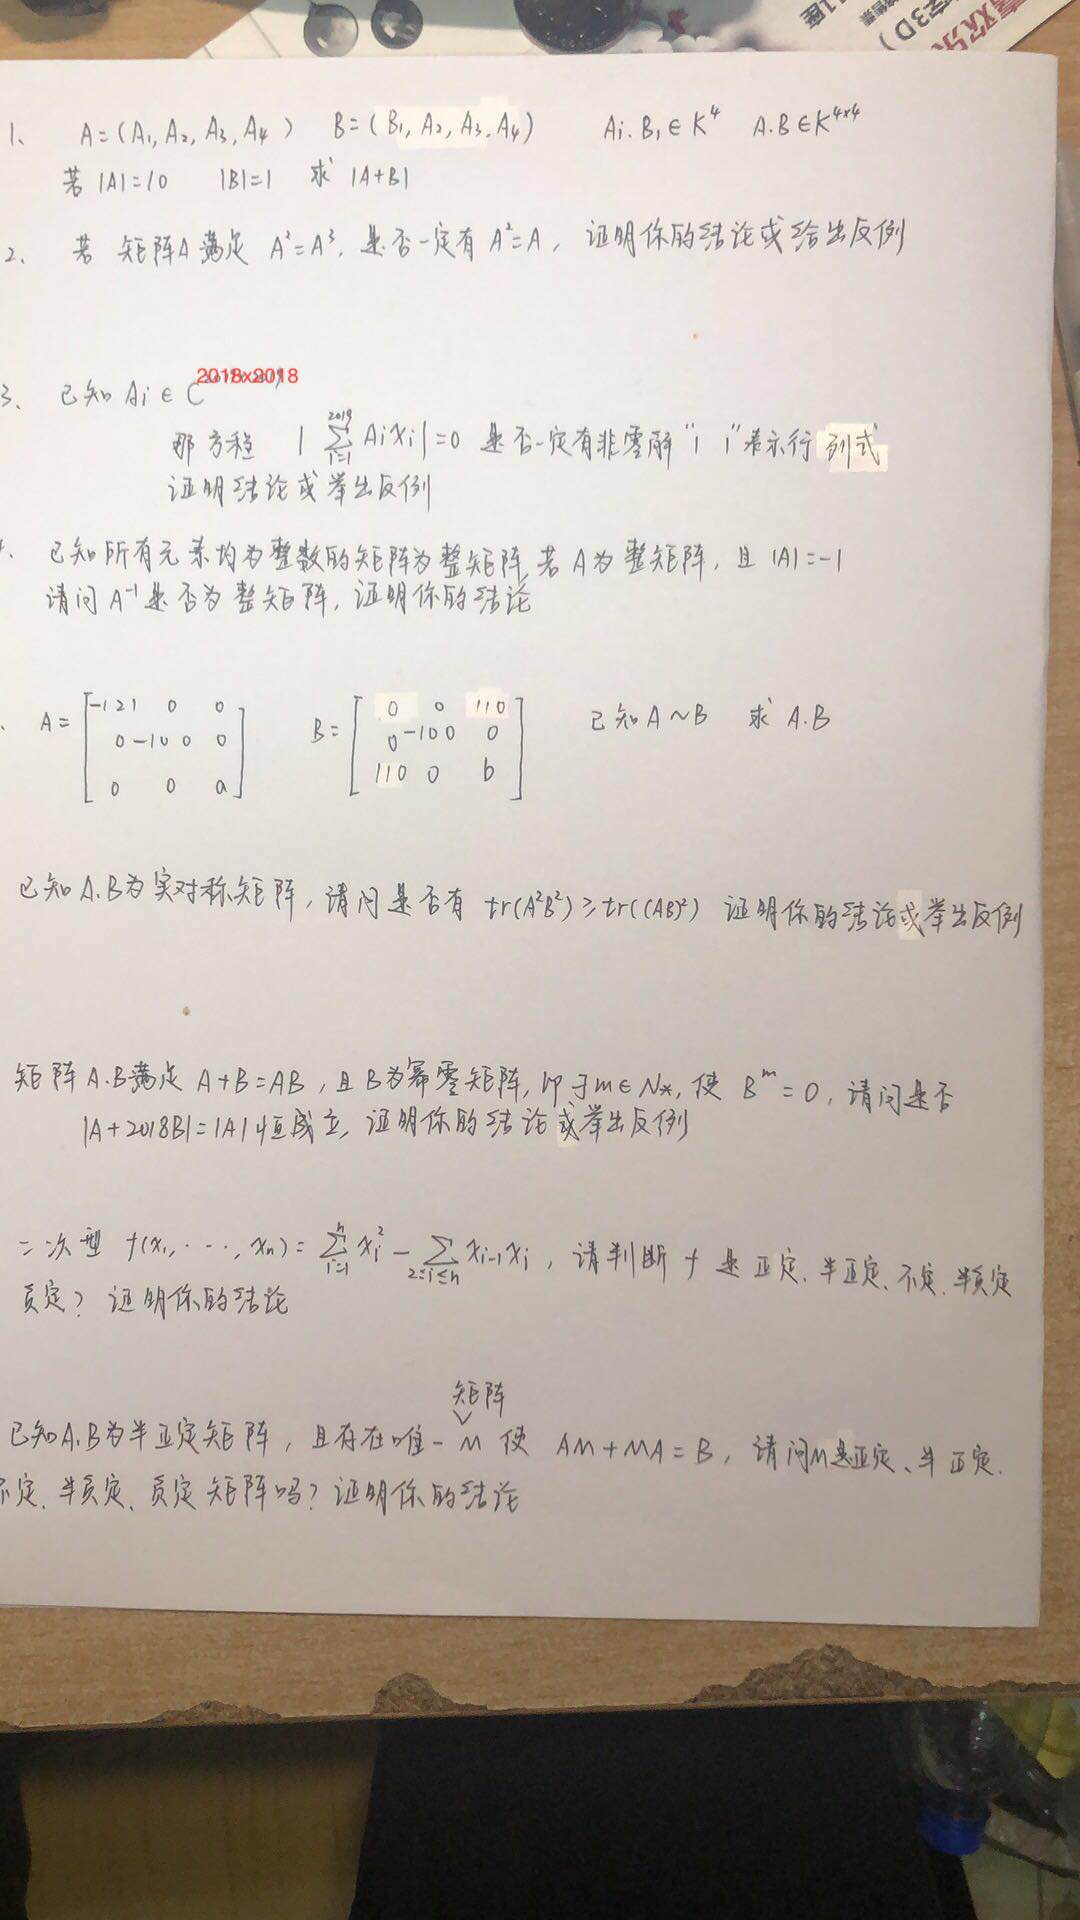 喜欢乐
字3D)
1座
1. A=(A₁, A₂, A₃, A₄) B=(B₁, A₂, A₃, A₄) Ai.B₁∈K⁴ A.B∈K⁴ˣ⁴
若 |A|=10 |B|=1 求 |A+B|
2. 若 矩阵A满足 A²=A³, 是否一定有 A²=A, 证明你的结论或给出反例
3、 已知 Ai∈C 2018x2018
那方程 |∑_{i=1}^{2019} Aixi|=0 是否一定有非零解 "| |"表示行列式
证明结论或举出反例
已知所有元素均为整数的矩阵为整矩阵, 若A为整矩阵, 且 |A|=-1
请问A⁻¹是否为整矩阵, 证明你的结论
A= [-121 0 0 B= [0 0 110 已知A~B 求 A.B
0 -100 0 0 -100 0
0 0 a] 110 0 b]
已知A.B为实对称矩阵, 请问是否有 tr(A²B²)≥tr((AB)²) 证明你的结论或举出反例
矩阵A.B满足 A+B=AB, 且B为幂零矩阵, 即∃m∈N*, 使 Bᵐ=0, 请问是否
|A+2018B|=|A|恒成立, 证明你的结论或举出反例
二次型 f(x₁,…,xₙ)=∑_{i=1}^{n} xi² - ∑_{2≤i≤n} xi-1xi, 请判断f是正定、半正定、不定、半负定
负定? 证明你的结论
矩阵
已知A.B为半正定矩阵, 且存在唯一M使 AM+MA=B, 请问M是正定、半正定.
不定、半负定、负定矩阵吗? 证明你的结论